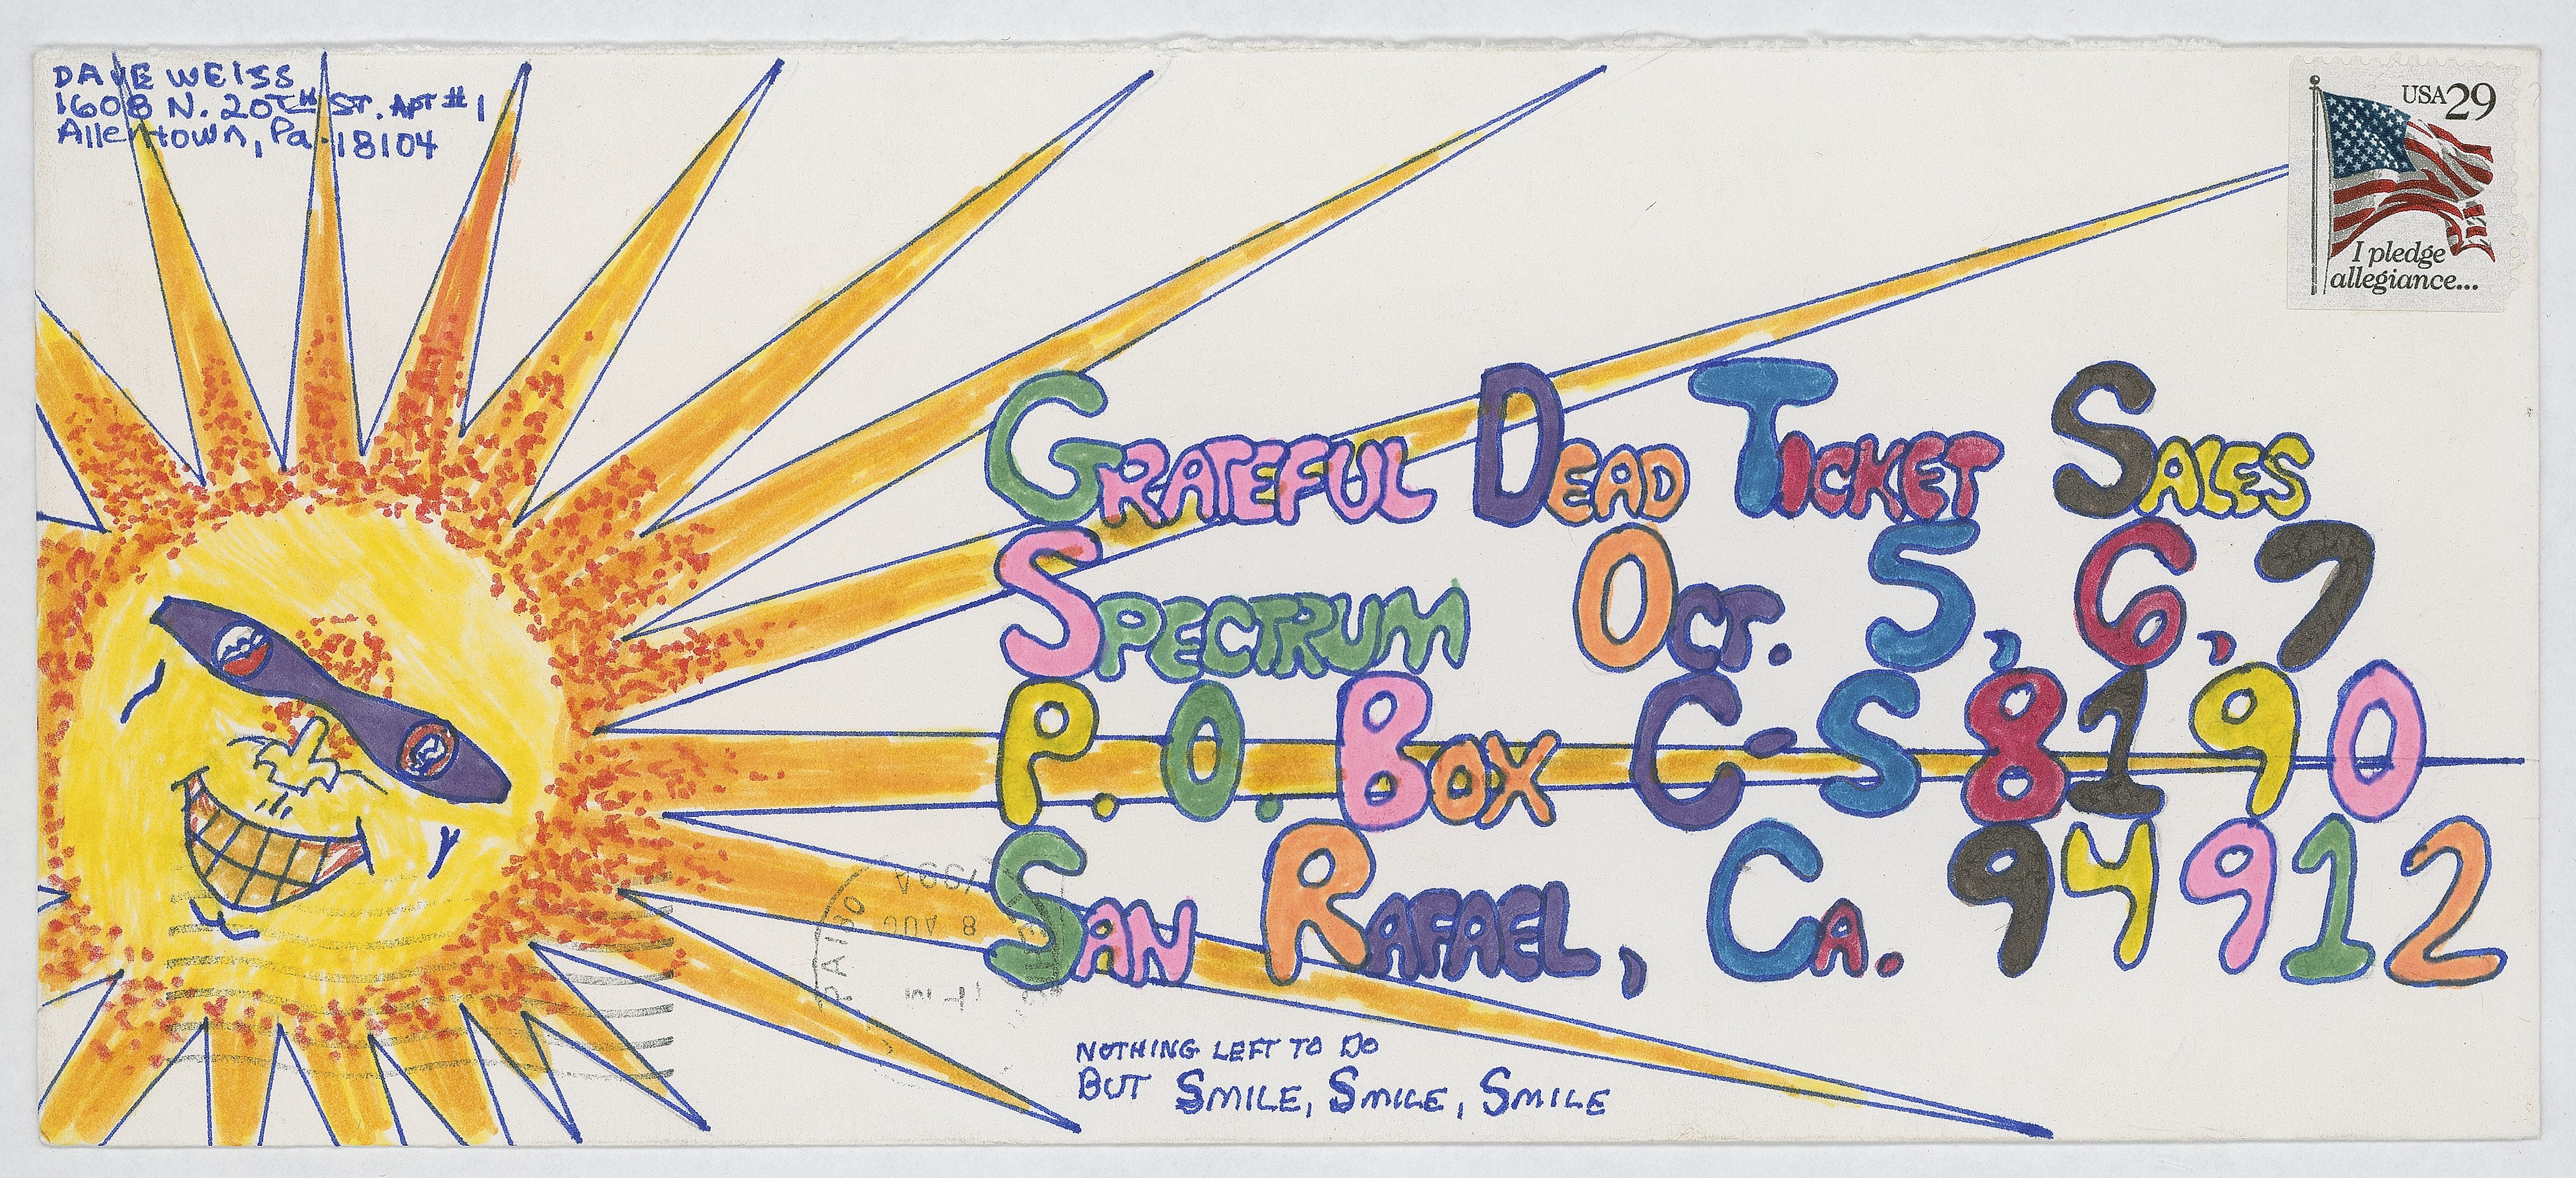 DAVE WEISS
1608 N. 20TH ST. APT #1
Allentown, Pa. 18104
USA 29
I pledge
allegiance...
GRATEFUL DEAD TICKET SALES
SPECTRUM OCT. 5, 6, 7
P.O. BOX C-S 8190
SAN RAFAEL, CA. 94912
8 AUG
NOTHING LEFT TO DO
BUT SMILE, SMILE, SMILE